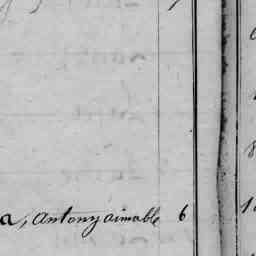 a, antony aimable 6